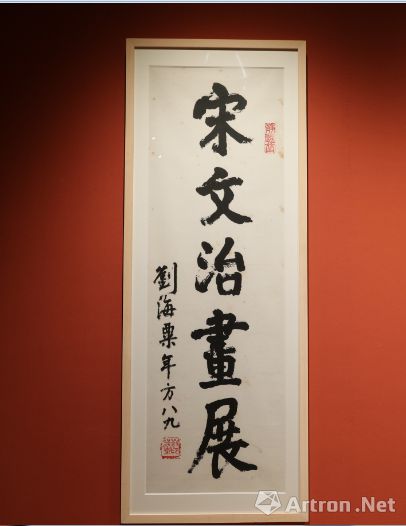 宋文治畫展
劉海粟年方八九
Artron.Net